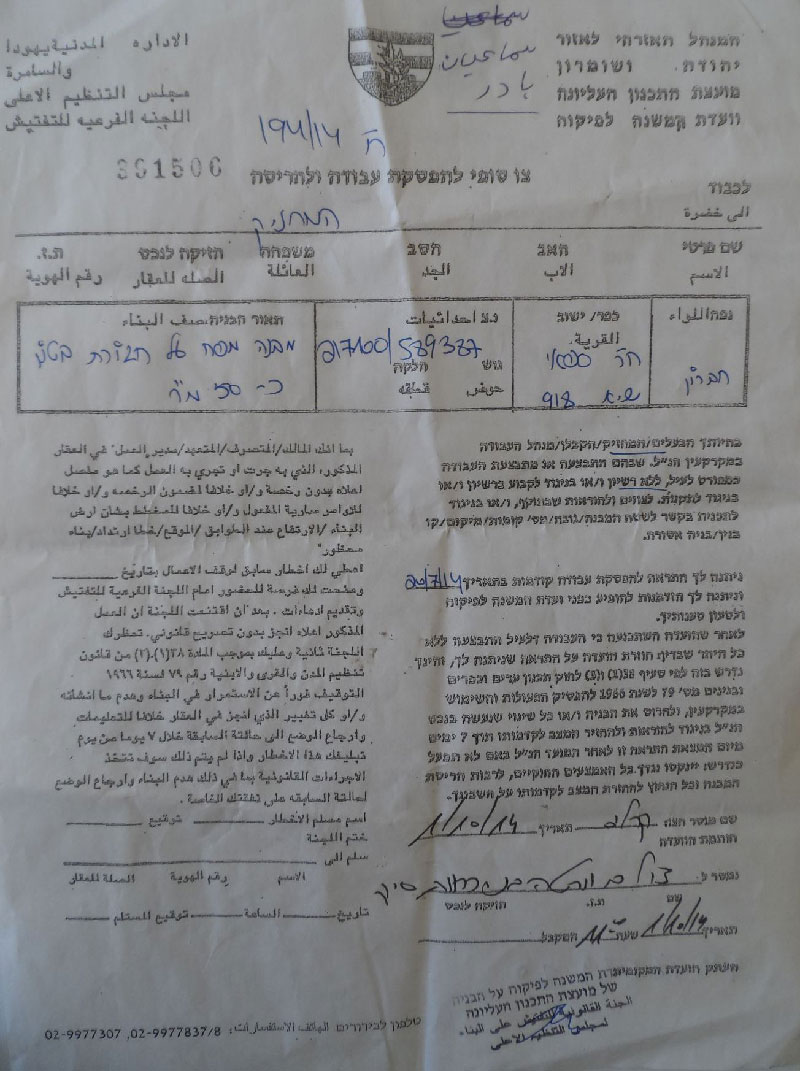 המנהל האזרחי לאזור
יהודה ושומרון
מועצת התכנון העליונה
וועדת המשנה לפיקוח
الاداره المدنية يهودا
والسامرة
مجلس التنظيم الاعلى
اللجنه الفرعيه للتفتيش
194/14
301506
צו סופי להפסקת עבודה ולהריסה
לכבוד
الى حضرة
המחזיק
שם פרטי האב הסב משפחה הזיקה לנכס ת.ז.
الاسم الاب الجد العائلة الصله للعقار رقم الهوية
נפה/اللواء כפר/ישוב נ.צ احداثيات תאור הבניה وصف البناء
القرية.
חברון
918
217100/589387
גוש חלקה
حوض قطعه
מבנה מפח על תשתית בטון
כ- 50 מ"ר
בהיותך הבעלים/המחזיק/הקבלן/מנהל העבודה
במקרקעין הנ"ל. שבהם התבצעה או מתבצעת העבודה
כמפורט לעיל, ללא רשיון ו/או בניגוד לקבוע ברשיון ו/או
בניגוד לתקנות. לצווים ולהוראות שבתוקף, ו/או בניגוד
לתכנית בקשר לשטח המבנה/גובה/מס' קומות/מיקום/קו
בנין/בניה אסורה.
ניתנה לך התראה להפסקת עבודה קודמות בתאריך 20/7/14
וניתנה לך הזדמנות להופיע בפני ועדת המשנה לפיקוח
ולטעון טענותיך.
לאחר שהועדה השתכנעה כי העבודה דלעיל התבצעה ללא
כל היתר שבדין חוזרת הועדה על התראה שניתנה לך, והינך
נדרש בזה לפי סעיף 38(1) ו(2) לחוק תכנון ערים וכפרים
ובנינים מס' 79 לשנת 1966 להפסיק הפעולות והשימוש
במקרקעין, ולהרוס את הבניה ו/או כל שינוי שנעשה בנכס
הנ"ל בניגוד להוראות ולהחזיר המצב לקדמותו תוך 7 ימים
מיום המצאת התראה זו לאחר המועד הנ"ל באם לא תפעל
כנדרש: יינקטו נגדך כל האמצעים החוקיים, לרבות הריסת
המבנה וכל הנחוץ להחזרת המצב לקדמותו על חשבונך.
שם מוסר הצו תאריך 1/10/14
חותמת הועדה
נמסר ל
שם ת.ז. הזיקה לנכס
תאריך 1/10/14 שעה 11 המקבל
بما انك المالك/المتصرف/المتعهد/مدير العمل في العقار
المذكور، الذي به جرت او تجري به العمل كما هو مفصل
اعلاه بدون رخصة و/او خلافا لمضمون الرخصه و/او خلافا
لاوامر سارية المفعول و/او خلافا للمخطط بشان ارض
البناء/الارتفاع عند الطوابق/الموقع/خط ارتداد/بناء
محظور"
اعطي لك اخطار سابق لوقف الاعمال بتاريخ
ومنحت لك فرصة للحضور امام اللجنة الفرعية للتفتيش
وتقديم ادعاءات. بعد ان اقتنعت اللجنة ان العمل
المذكور اعلاه انجز بدون تصريح قانوني. تحظرك
اللجنة ثانية وعليك بموجب المادة ٣٨(١).(٢) من قانون
تنظيم المدن والقرى والابنية رقم ٧٩ لسنة ١٩٦٦
التوقيف فورا عن الاستمرار في البناء وهدم ما انشاته
و/او كل تغيير الذي انجز في العقار خلافا للتعليمات
وارجاع الوضع الى حالته السابقة خلال ٧ يوما من يوم
تبليغك هذا الاخطار واذا لم يتم ذلك سوف تتخذ
الاجراءات القانونية بما في ذلك هدم البناء وارجاع الوضع
لحالته السابقه على نفقتك الخاصة.
اسم مسلم الاخطار توقيع
ختم اللجنة
سلم الى
الاسم رقم الهوية الصلة للعقار
تاريخ الساعة توقيع المستلم
המשנה לפיקוח על הבניה
של מועצת התכנון העליונה
على البناء
لمجلس التنظيم الاعلى
טלפון לבירורים הهاتف الاستفسارات: 02-9977837/8, 02-9977307